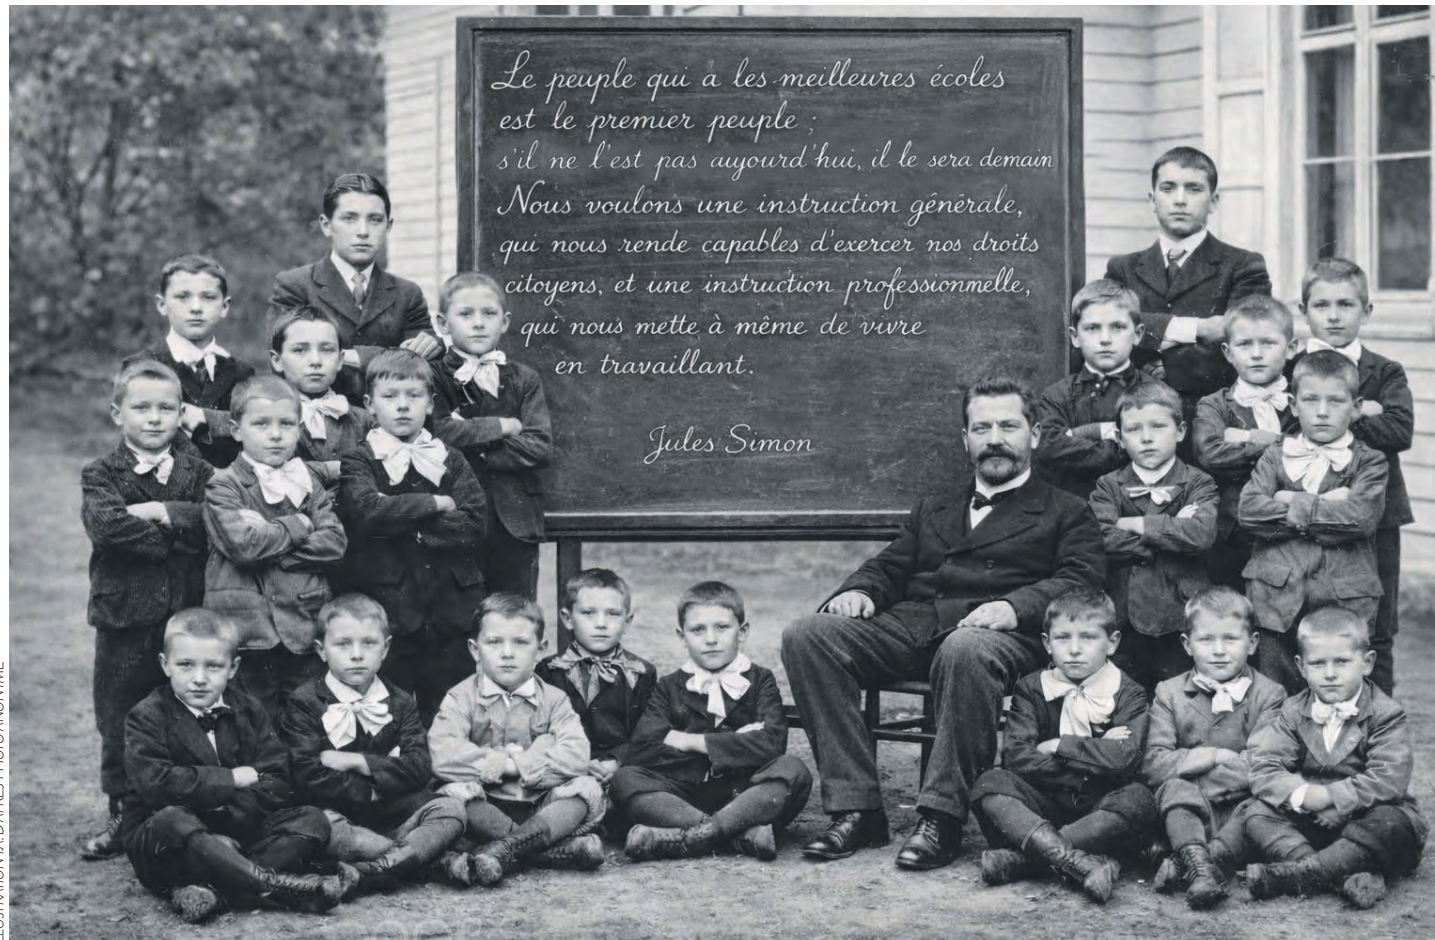 Le peuple qui a les meilleures écoles
est le premier peuple ;
s'il ne l'est pas aujourd'hui, il le sera demain
Nous voulons une instruction générale,
qui nous rende capables d'exercer nos droits
citoyens, et une instruction professionnelle,
qui nous mette à même de vivre
en travaillant.
Jules Simon
D'APRÈS PHOTO ANONYME